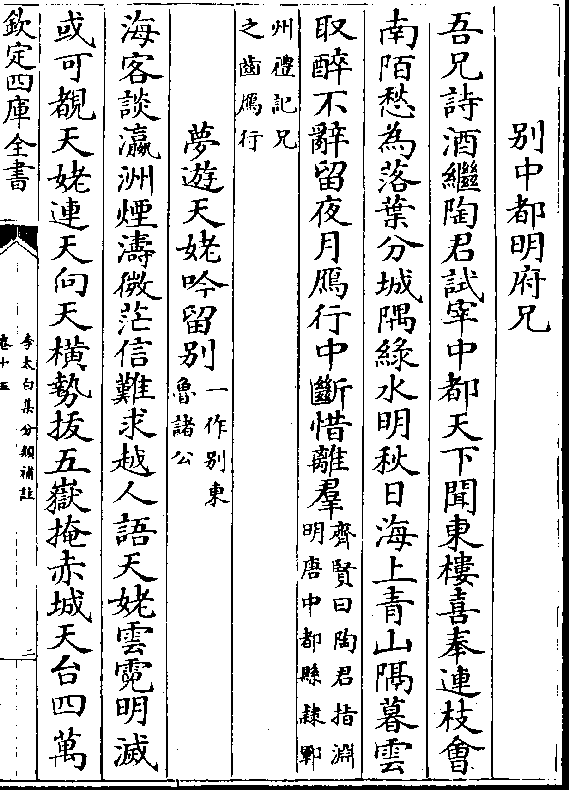 别中都明府兄
吾兄詩酒繼陶君試宰中都天下聞東樓喜奉連枝會
南陌愁為落葉分城隅綠水明秋日海上青山隔暮雲
取醉不辭留夜月鴈行中斷惜離羣齊賢曰陶君指淵
明唐中都縣隸鄆
州禮記兄
之齒鴈行
夢遊天姥吟留别一作别東
魯諸公
海客談瀛洲煙濤微茫信難求越人語天姥雲霓明滅
或可覩天姥連天向天橫勢拔五嶽掩赤城天台四萬
欽定四庫全書
李太白集分類補註
卷十五
二